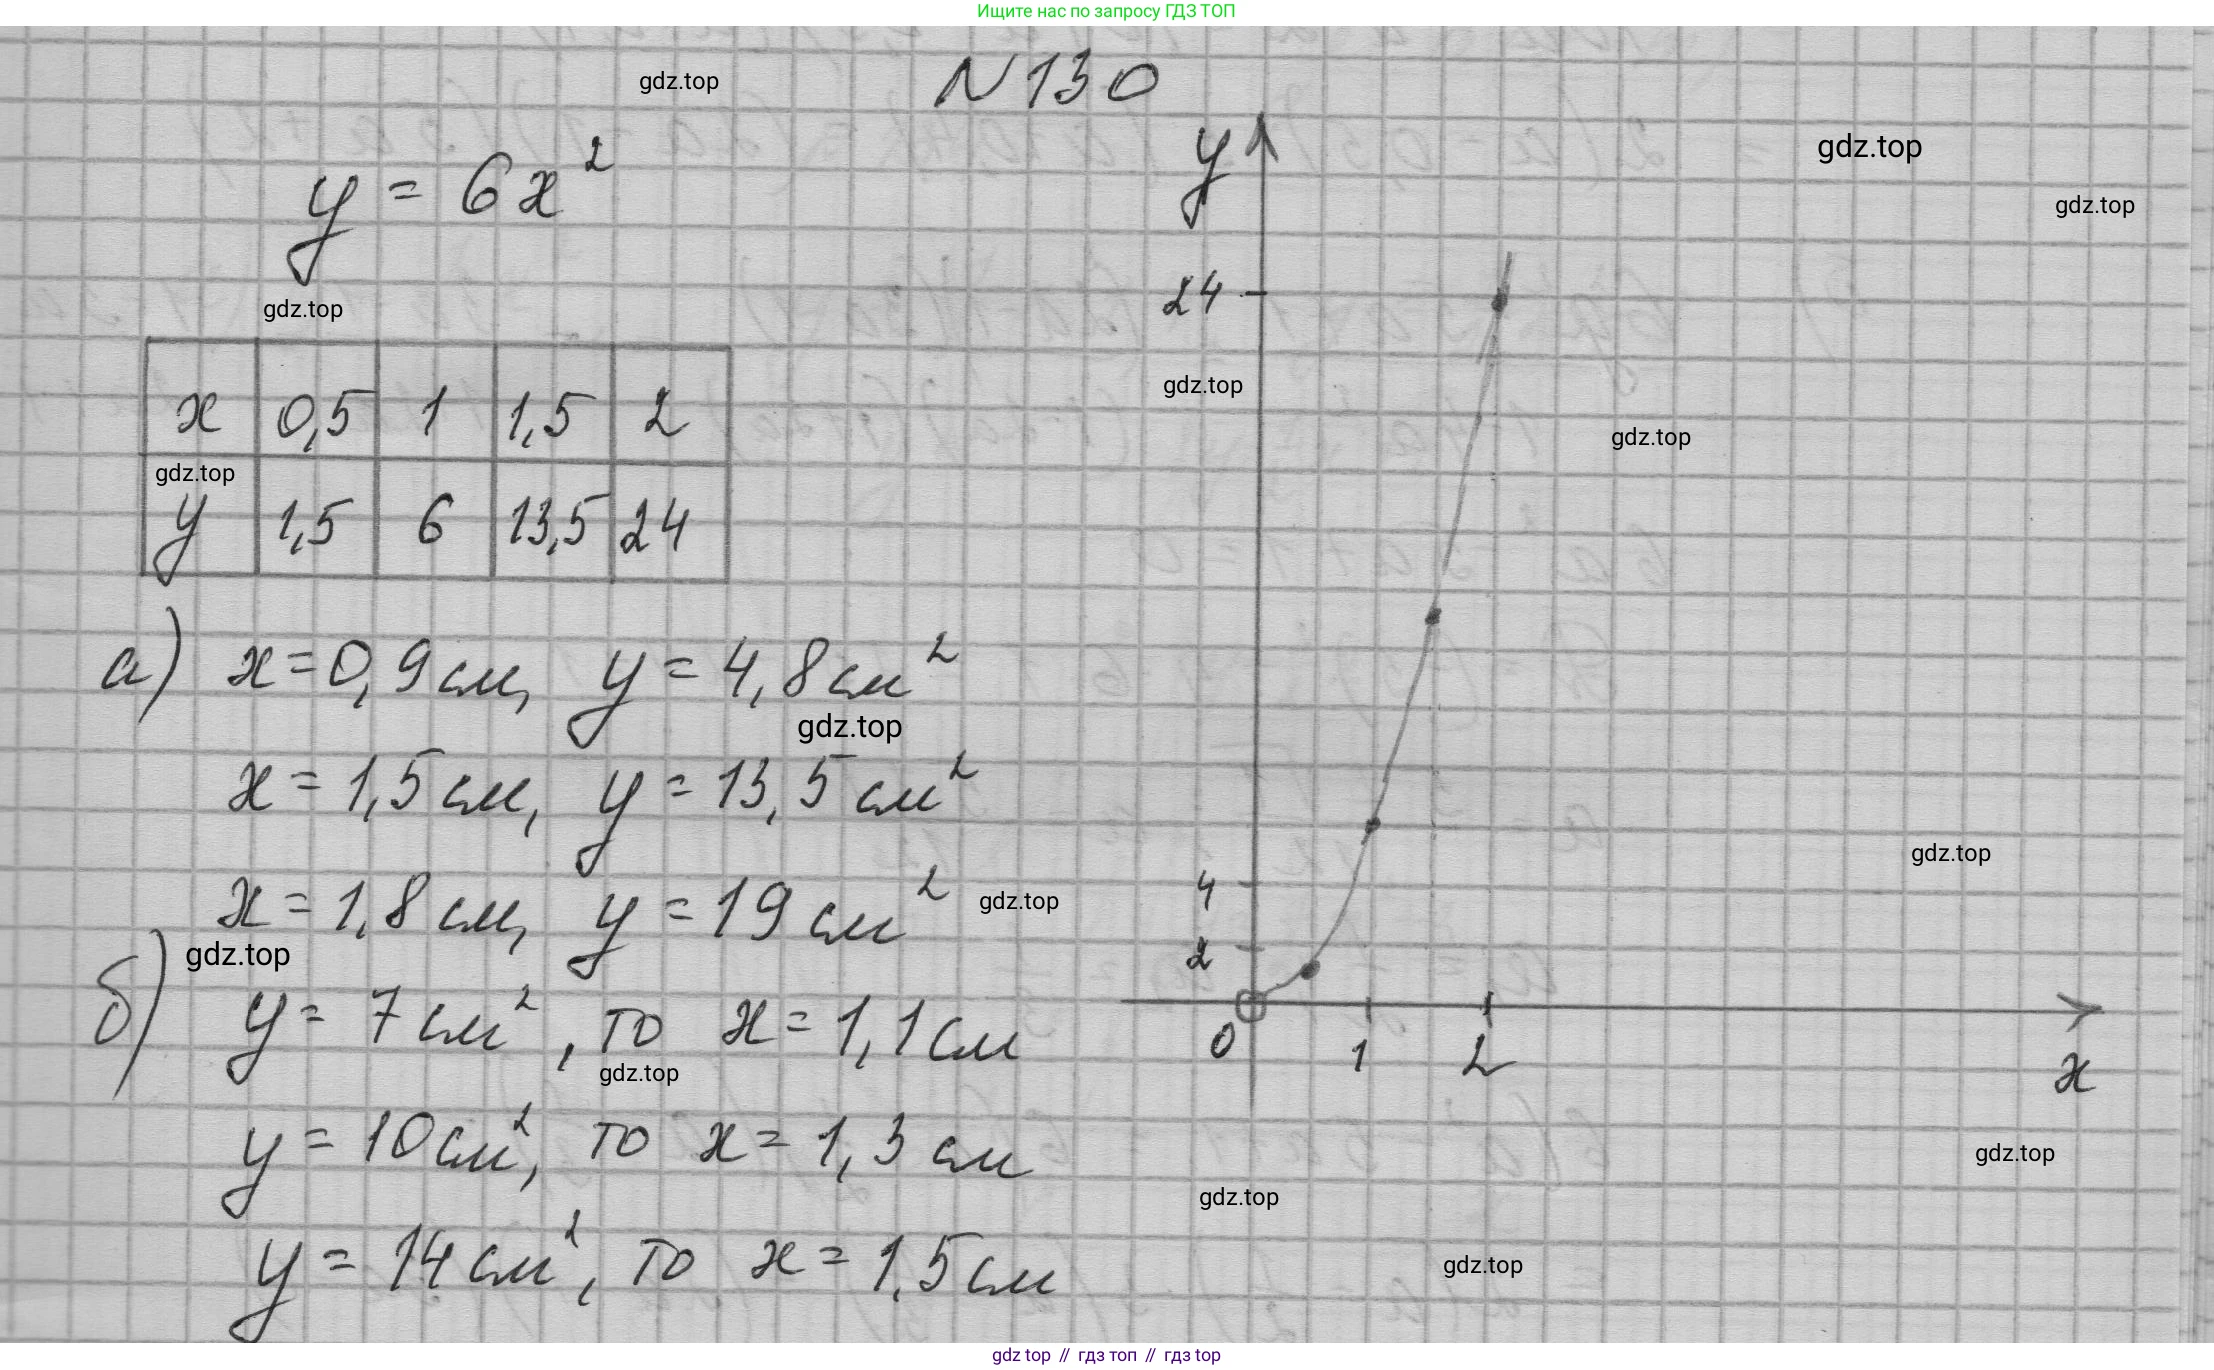 Ищите нас по запросу ГДЗ ТОП
N 130
gdz.top
y = 6x²
y
gdz.top
gdz.top
24
gdz.top
x 0,5 1 1,5 2
gdz.top
y 1,5 6 13,5 24
gdz.top
gdz.top
а) x = 0,9 см, y = 4,8 см²
gdz.top
x = 1,5 см, y = 13,5 см²
gdz.top
x = 1,8 см, y = 19 см²
gdz.top
4
2
gdz.top
0 1 2
x
б) y = 7 см², то x = 1,1 см
gdz.top
y = 10 см², то x = 1,3 см
gdz.top
gdz.top
y = 14 см², то x = 1,5 см
gdz.top
gdz top // гдз топ // gdz top